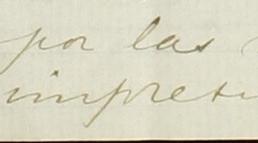 por las
impresi